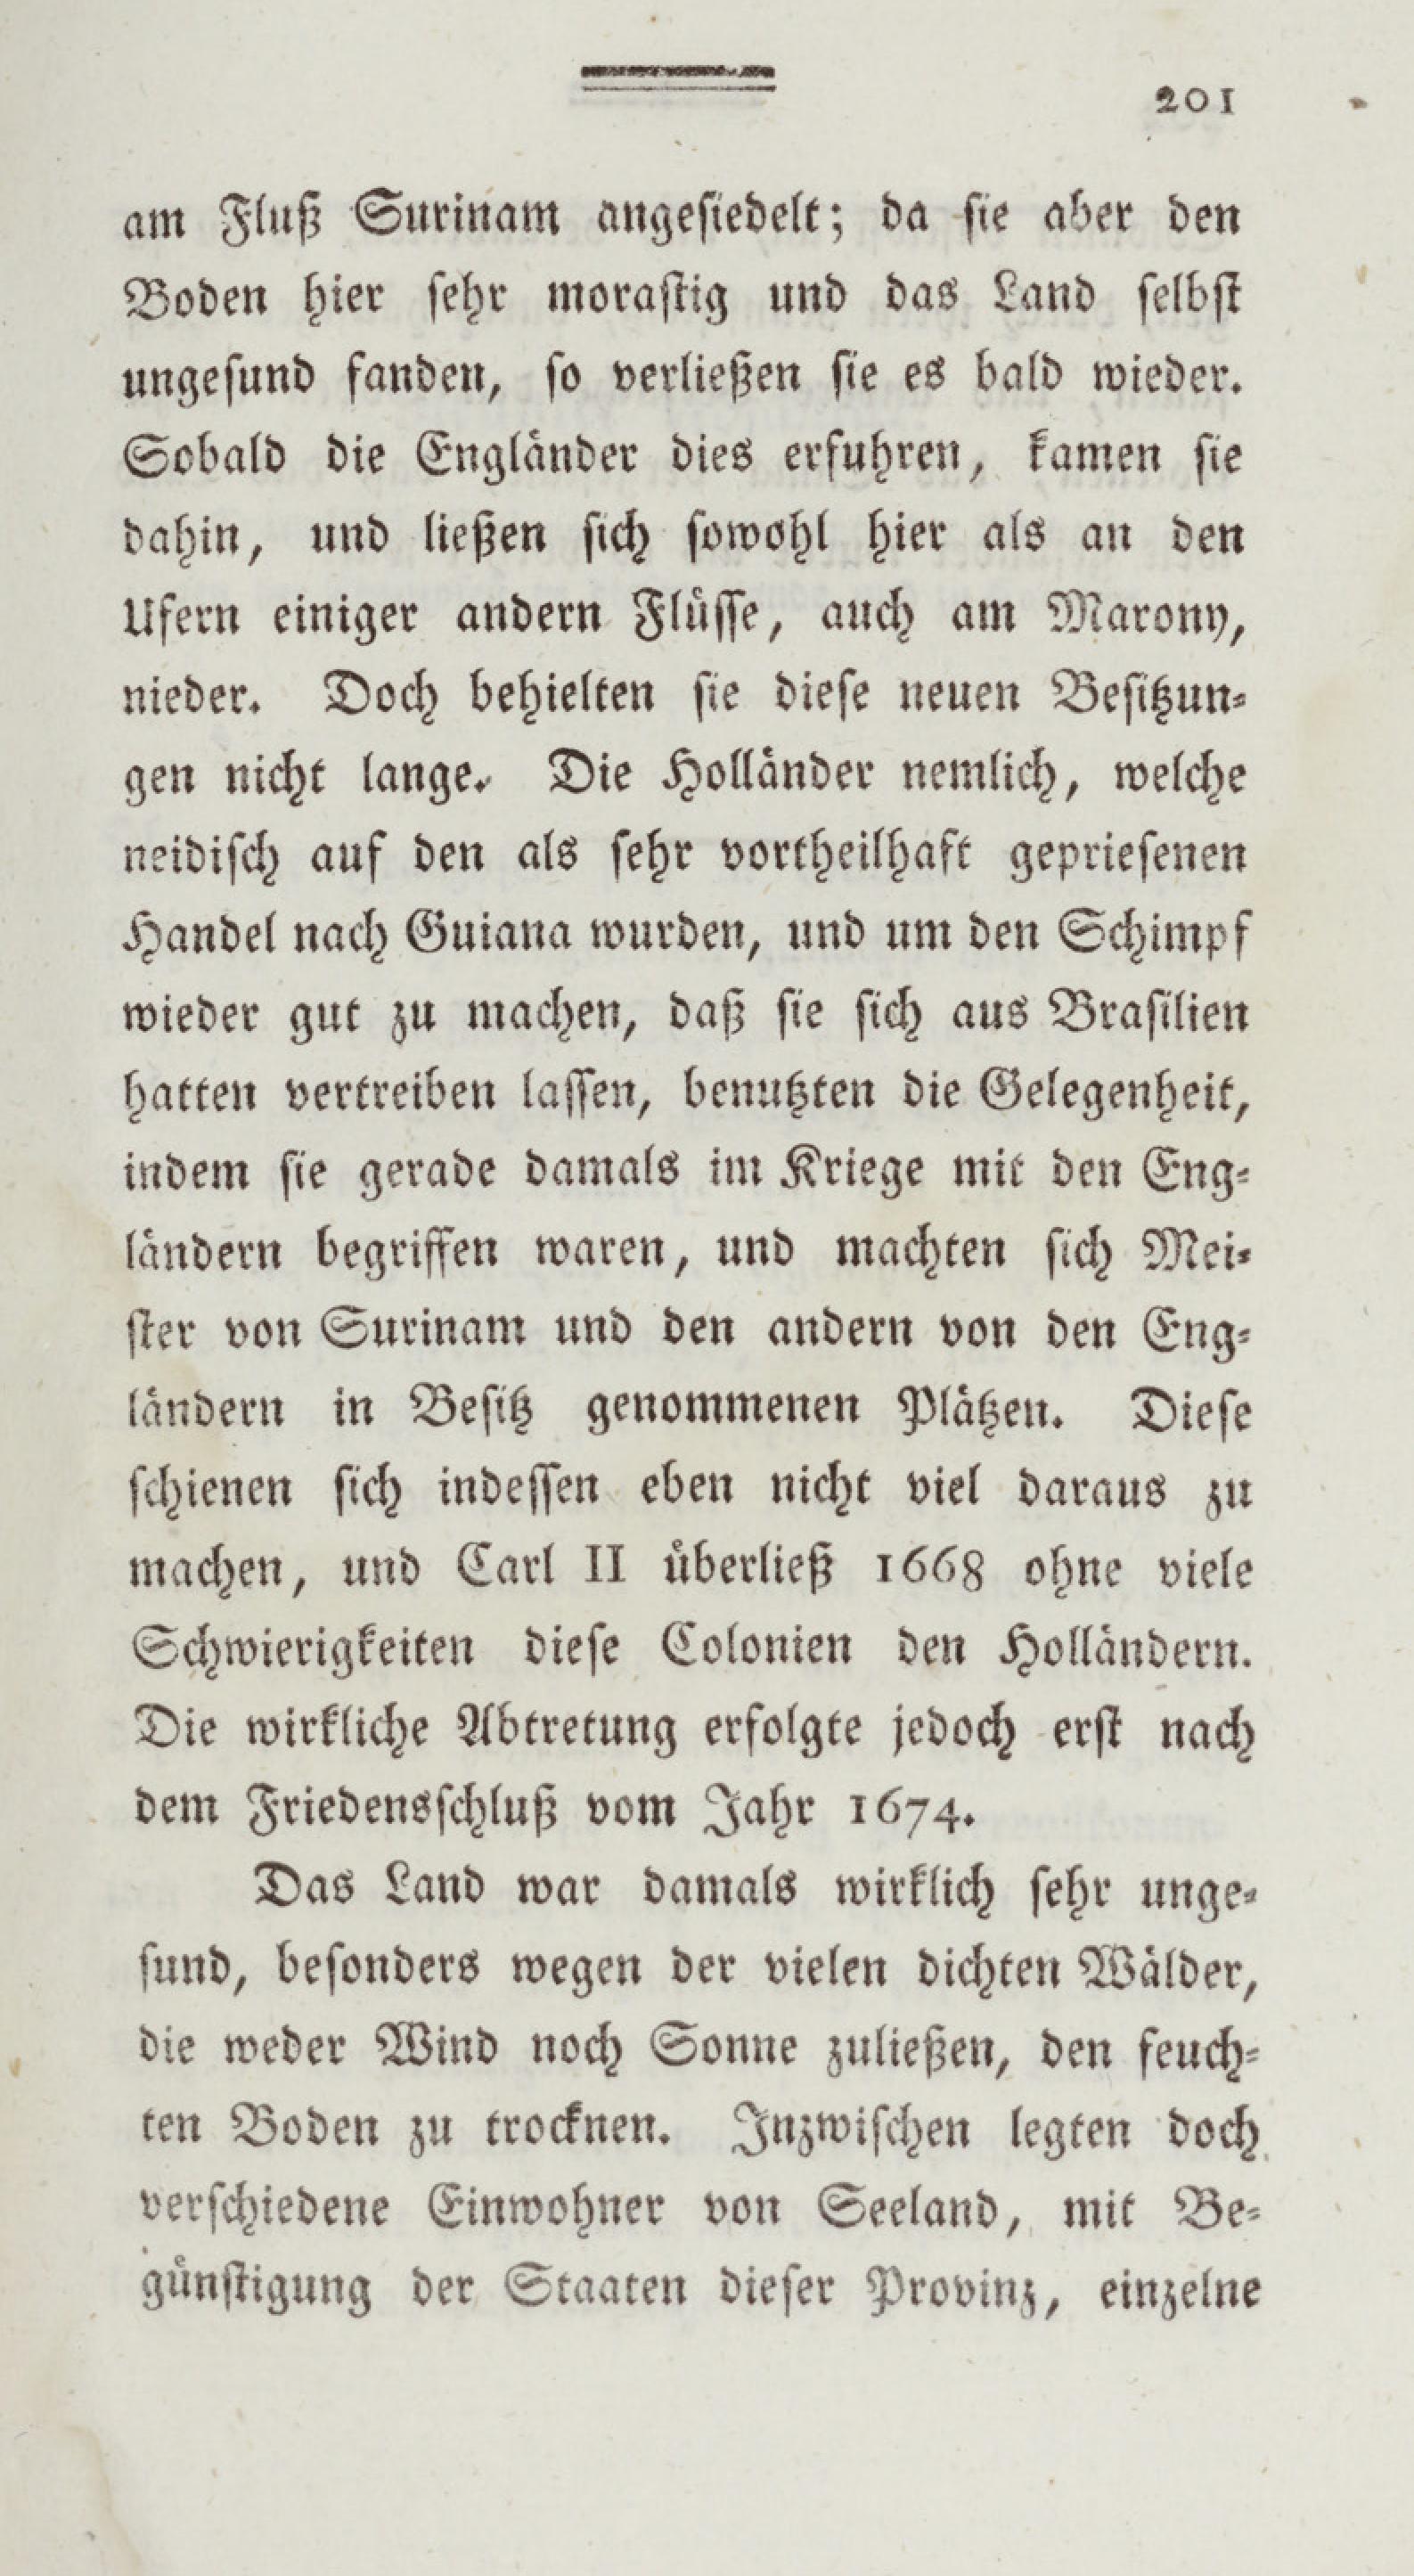 201
am Fluß Surinam angesiedelt; da sie aber den
Boden hier sehr morastig und das Land selbst
ungesund fanden, so verließen sie es bald wieder.
Sobald die Engländer dies erfuhren, kamen sie
dahin, und ließen sich sowohl hier als an den
Ufern einiger andern Flüsse, auch am Marony,
nieder. Doch behielten sie diese neuen Besitzun-
gen nicht lange. Die Holländer nemlich, welche
neidisch auf den als sehr vortheilhaft gepriesenen
Handel nach Guiana wurden, und um den Schimpf
wieder gut zu machen, daß sie sich aus Brasilien
hatten vertreiben lassen, benutzten die Gelegenheit,
indem sie gerade damals im Kriege mit den Eng-
ländern begriffen waren, und machten sich Mei-
ster von Surinam und den andern von den Eng-
ländern in Besitz genommenen Plätzen. Diese
schienen sich indessen eben nicht viel daraus zu
machen, und Carl II überließ 1668 ohne viele
Schwierigkeiten diese Colonien den Holländern.
Die wirkliche Abtretung erfolgte jedoch erst nach
dem Friedensschluß vom Jahr 1674.
Das Land war damals wirklich sehr unge-
sund, besonders wegen der vielen dichten Wälder,
die weder Wind noch Sonne zuließen, den feuch-
ten Boden zu trocknen. Inzwischen legten doch
verschiedene Einwohner von Seeland, mit Be-
günstigung der Staaten dieser Provinz, einzelne